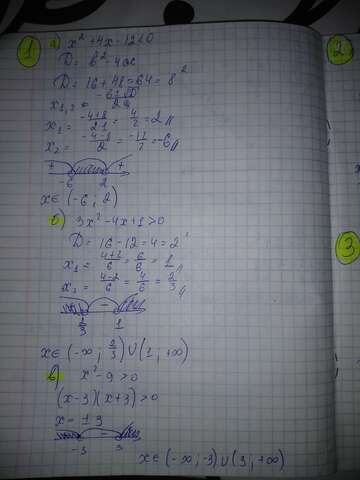 1 a) x² + 4x - 12 < 0
2
D = b² - 4ac
D = 16 + 48 = 64 = 8²
x₁,₂ = (-b ± √D) / 2a
x₁ = (-4+8) / 2·1 = 4/2 = 2
x₂ = (-4-8) / 2 = -12/2 = -6
+ - +
-6 2
x ∈ (-6 ; 2)
б) 3x² - 4x + 1 > 0
D = 16 - 12 = 4 = 2²
3
x₁ = (4+2) / 6 = 6/6 = 1
x₂ = (4-2) / 6 = 4/6 = 2/3
-
2/3 1
x ∈ (-∞ ; 2/3) ∪ (1 ; +∞)
в) x² - 9 > 0
(x-3)(x+3) > 0
x = ±3
-
-3 3
x ∈ (-∞ ; -3) ∪ (3 ; +∞)